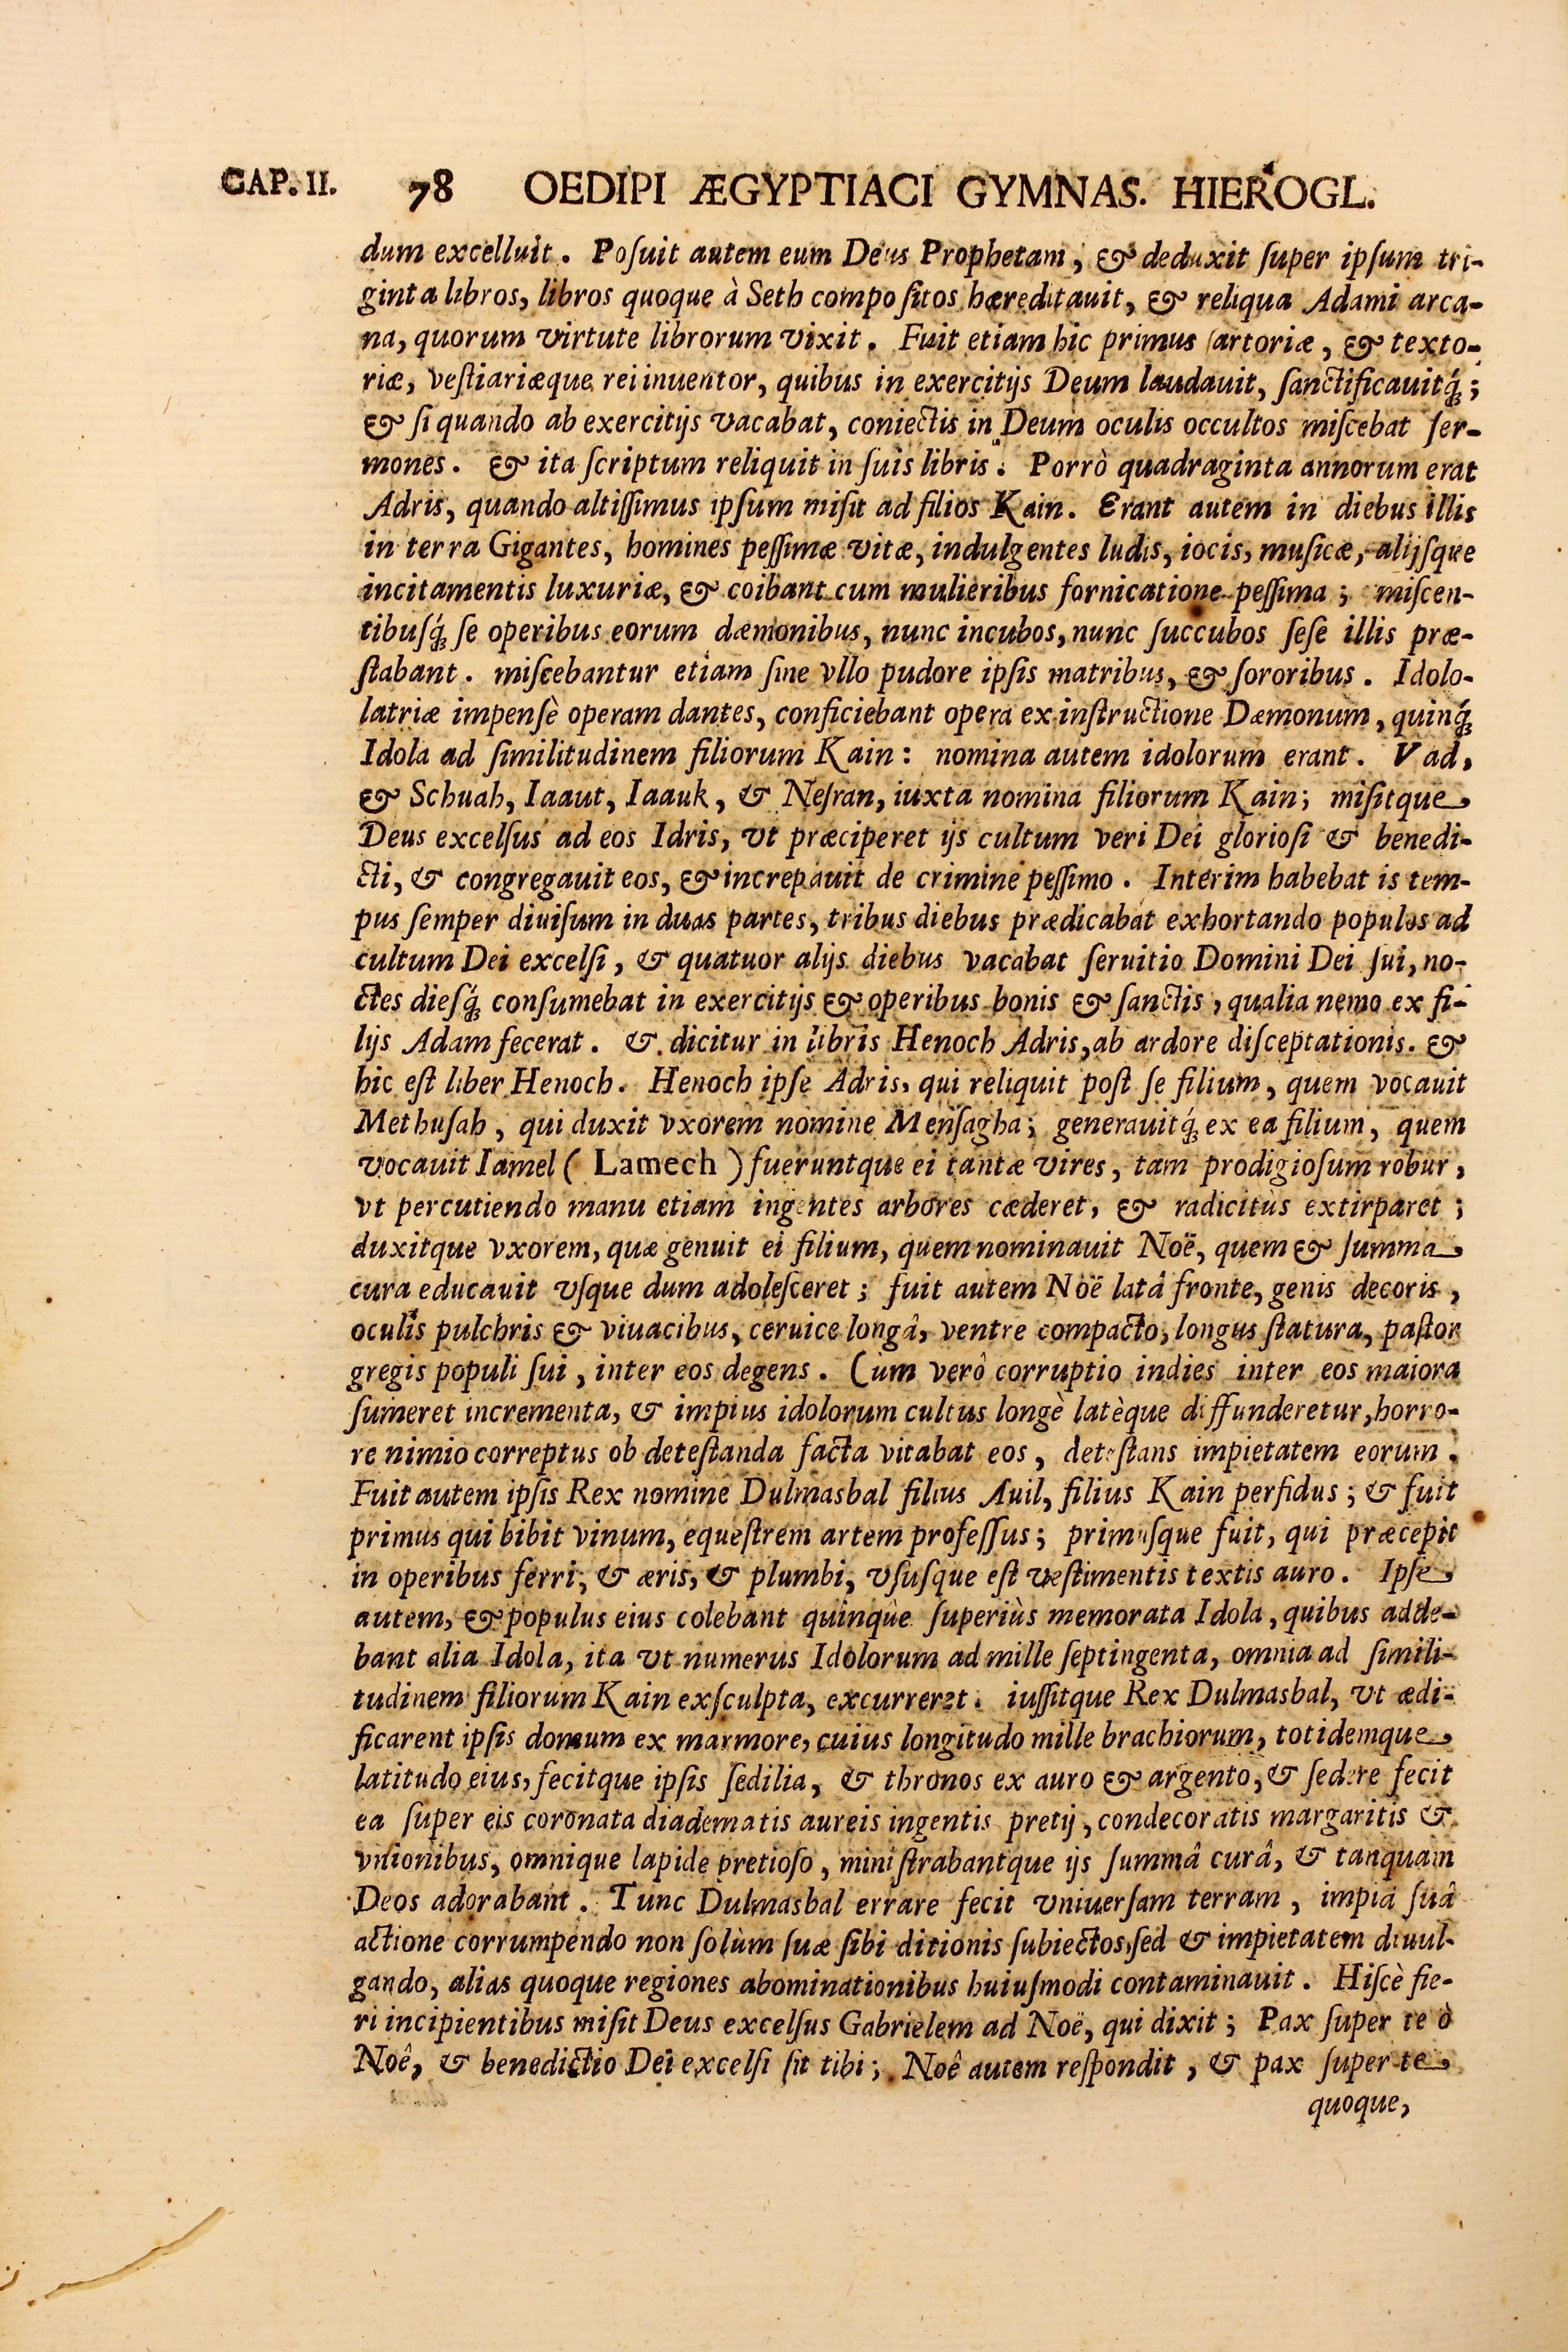 CAP. II. 78 OEDIPI ÆGYPTIACI GYMNAS. HIEROGL.
dum excelluit. Poſuit autem eum Deus Prophetam, & deduxit ſuper ipſum tri-
ginta libros, libros quoque à Seth compoſitos hæreditauit, & reliqua Adami arca-
na, quorum virtute librorum vixit. Fuit etiam hic primus ſartoriæ, & texto-
riæ, veſtiariæque rei inuentor, quibus in exercitijs Deum laudauit, ſanctificauitq́;
& ſi quando ab exercitijs vacabat, coniectis in Deum oculis occultos miſcebat ſer-
mones. & ita ſcriptum reliquit in ſuis libris. Porrò quadraginta annorum erat
Adris, quando altiſſimus ipſum miſit ad filios Kain. Erant autem in diebus illis
in terra Gigantes, homines peſſimæ vitæ, indulgentes ludis, iocis, muſicæ, alijſque
incitamentis luxuriæ, & coibant cum mulieribus fornicatione peſſima; miſcen-
tibuſq́ ſe operibus eorum dæmonibus, nunc incubos, nunc ſuccubos ſeſe illis præ-
ſtabant. miſcebantur etiam ſine vllo pudore ipſis matribus, & ſororibus. Idolo-
latriæ impensè operam dantes, conficiebant opera ex inſtructione Dæmonum, quinq́
Idola ad ſimilitudinem filiorum Kain: nomina autem idolorum erant. Vad,
& Schuah, Iaaut, Iaauk, & Neſran, iuxta nomina filiorum Kain; miſitque
Deus excelſus ad eos Idris, vt præciperet ijs cultum veri Dei glorioſi & benedi-
cti, & congregauit eos, & increpauit de crimine peſſimo. Interim habebat is tem-
pus ſemper diuiſum in duas partes, tribus diebus prædicabat exhortando populos ad
cultum Dei excelſi, & quatuor alijs diebus vacabat ſeruitio Domini Dei ſui, no-
ctes dieſq́ conſumebat in exercitijs & operibus bonis & ſanctis, qualia nemo ex fi-
lijs Adam fecerat. & dicitur in libris Henoch Adris, ab ardore diſceptationis. &
hic eſt liber Henoch. Henoch ipſe Adris, qui reliquit poſt ſe filium, quem vocauit
Methuſah, qui duxit vxorem nomine Menſagha; generauitq́ ex ea filium, quem
vocauit Iamel ( Lamech ) fueruntque ei tantæ vires, tam prodigioſum robur,
vt percutiendo manu etiam ingentes arbores cæderet, & radicitùs extirparet;
duxitque vxorem, quæ genuit ei filium, quem nominauit Noë, quem & ſumma
cura educauit vſque dum adoleſceret; fuit autem Noë latâ fronte, genis decoris,
oculis pulchris & viuacibus, ceruice longâ, ventre compacto, longus ſtatura, paſtor
gregis populi ſui, inter eos degens. Cùm verô corruptio indies inter eos maiora
ſumeret incrementa, & impius idolorum cultus longè latèque diffunderetur, horro-
re nimio correptus ob deteſtanda facta vitabat eos, deteſtans impietatem eorum.
Fuit autem ipſis Rex nomine Dulmasbal filius Auil, filius Kain perfidus; & fuit
primus qui bibit vinum, equeſtrem artem profeſſus; primuſque fuit, qui præcepit
in operibus ferri, & æris, & plumbi, vſuſque eſt veſtimentis textis auro. Ipſe
autem, & populus eius colebant quinque ſuperiùs memorata Idola, quibus adde-
bant alia Idola, ita vt numerus Idolorum ad mille ſeptingenta, omnia ad ſimili-
tudinem filiorum Kain exſculpta, excurreret. iuſſitque Rex Dulmasbal, vt ædi-
ficarent ipſis domum ex marmore, cuius longitudo mille brachiorum, totidemque
latitudo eius, fecitque ipſis ſedilia, & thronos ex auro & argento, & ſedere fecit
ea ſuper eis coronata diadematis aureis ingentis pretij, condecoratis margaritis &
vnionibus, omnique lapide pretioſo, miniſtrabantque ijs ſummâ curâ, & tanquam
Deos adorabant. Tunc Dulmasbal errare fecit vniuerſam terram, impiâ ſuâ
actione corrumpendo non ſolùm ſuæ ſibi ditionis ſubiectos, ſed & impietatem diuul-
gando, alias quoque regiones abominationibus huiuſmodi contaminauit. Hiſcè fie-
ri incipientibus miſit Deus excelſus Gabrielem ad Noë, qui dixit; Pax ſuper te ò
Noê, & benedictio Dei excelſi ſit tibi; Noê autem reſpondit, & pax ſuper te
quoque,